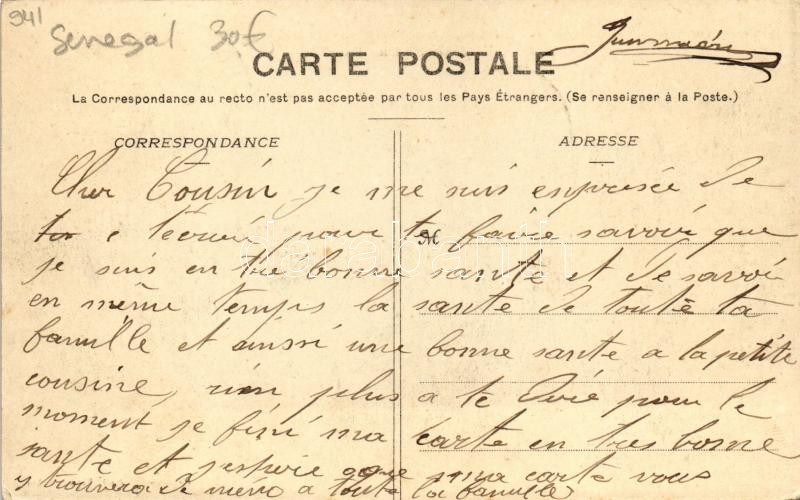 941
Senegal 30€
CARTE POSTALE
La Correspondance au recto n'est pas acceptée par tous les Pays Étrangers. (Se renseigner à la Poste.)
CORRESPONDANCE
ADRESSE
Cher Cousin je me suis de
pour te faire savoir que
M
je suis en tré bonne sante et de savoir
en même temps la sante de toute ta
famille et aussi une bonne sante a la petite
cousine, rien plus a te dire pour le
moment je fini ma carte en tres bonne
sante et j'espere que ma carte vous
y trouvera de meme a toute la famille